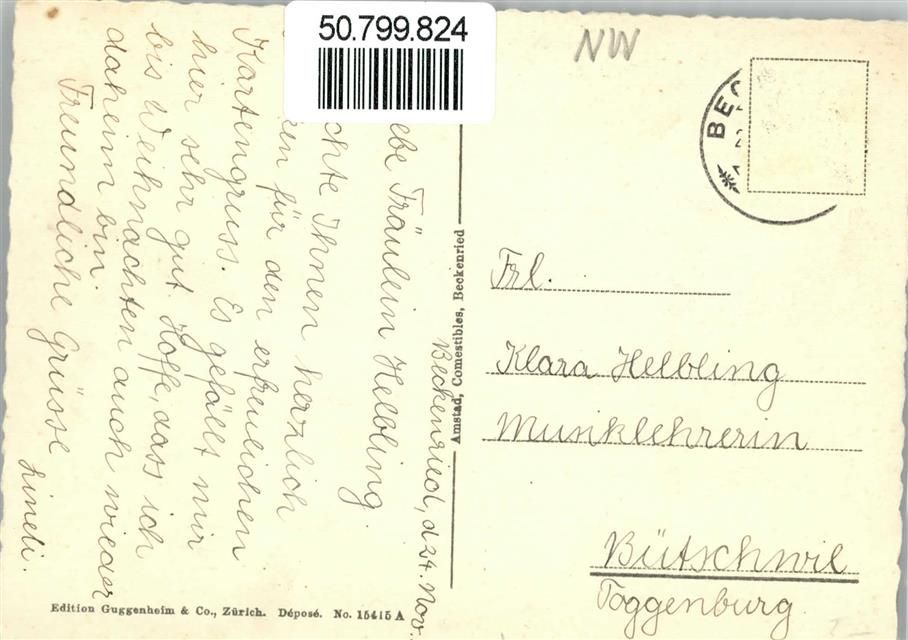 50.799.824
NW
BEC
Beckenried, d. 24. Nov.
Fräulein Helbling
Ihnen herzlich
für den erfreulichen
Kartengruss. Es gefällt mir
hier sehr gut. Hoffe, dass ich
bis Weihnachten auch wieder
daheim bin.
Freundliche Grüsse
Lineli.
Amstad, Comestibles, Beckenried
Frl.
Klara Helbling
Musiklehrerin
Bütschwil
Toggenburg
Edition Guggenheim & Co., Zürich. Déposé. No. 15415 A